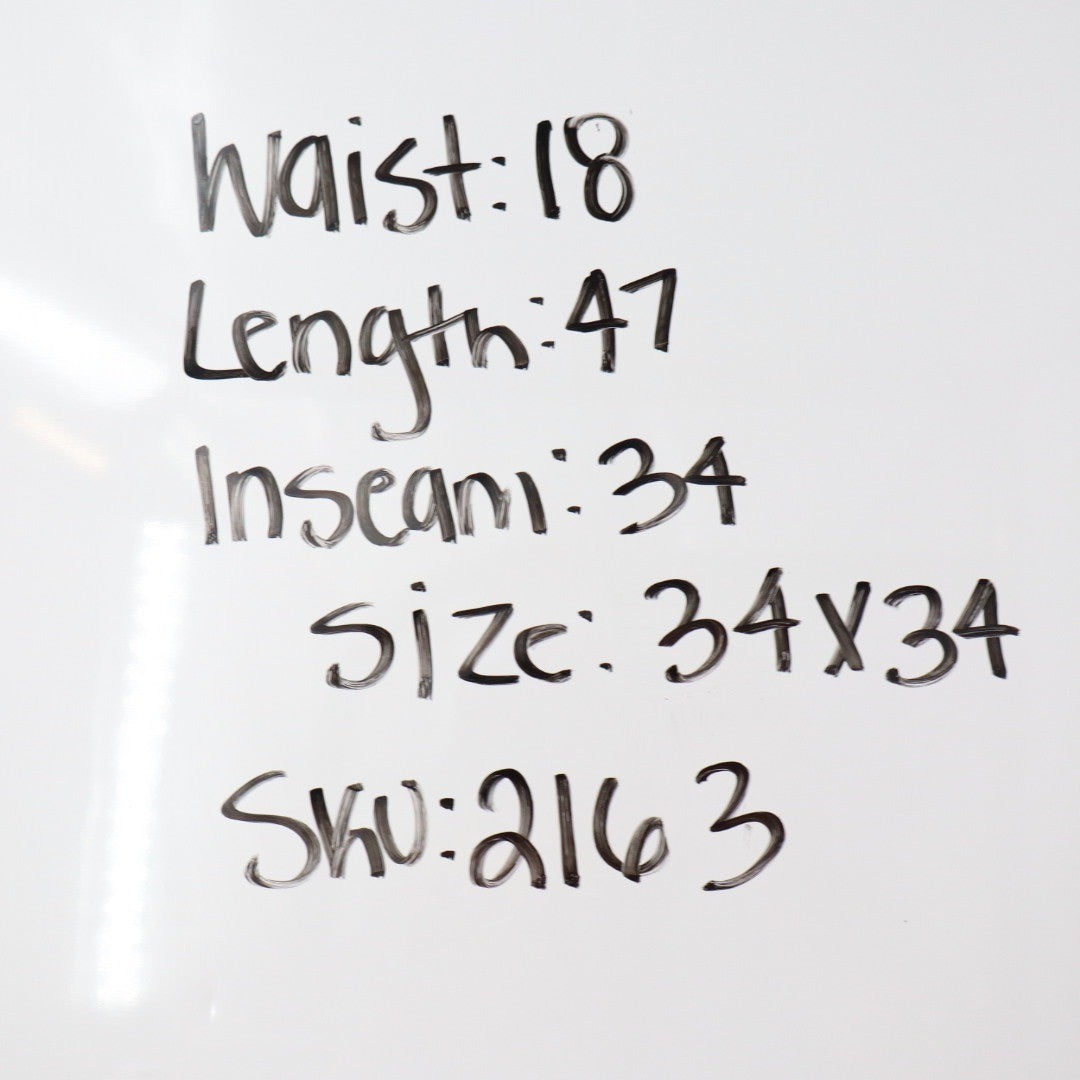 Waist: 18
Length: 47
Inseam: 34
Size: 34x34
SKU: 2163